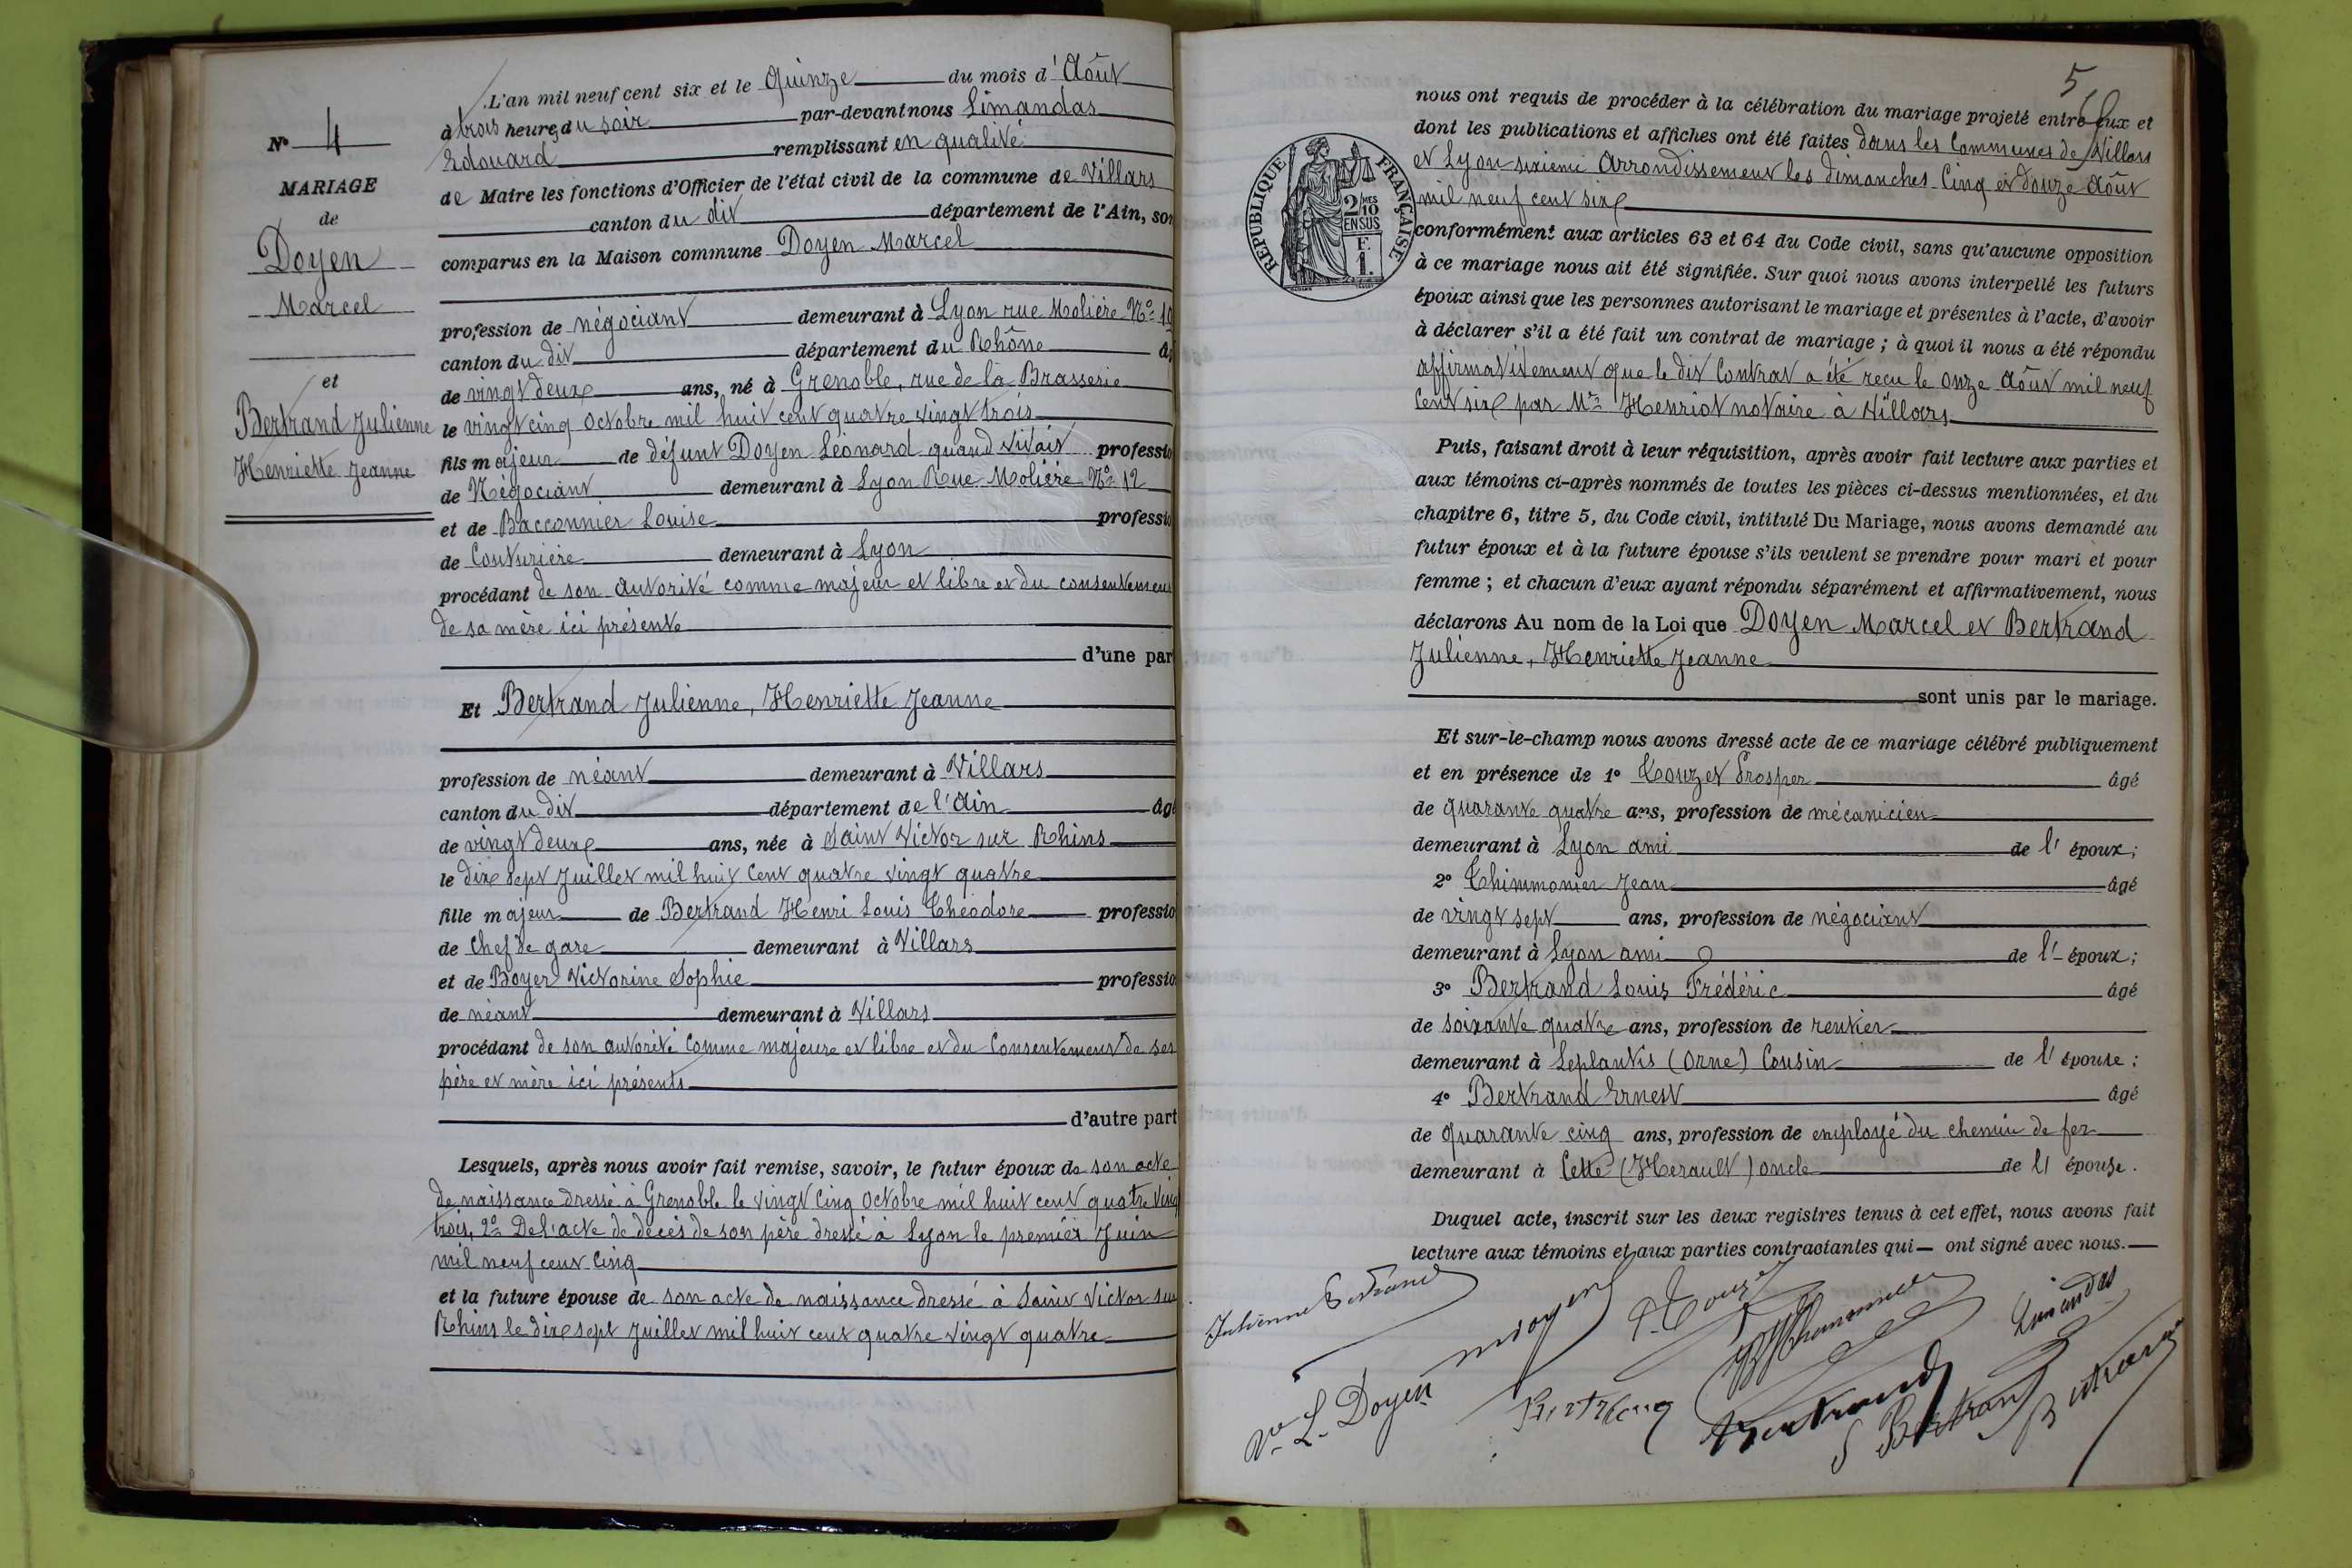 N° 4
MARIAGE
de
Doyen
Marcel
et
Bertrand Julienne
Henriette Jeanne
L'an mil neuf cent six et le Quinze du mois d'Août
à trois heures du soir par-devant nous Limandas
Edouard remplissant en qualité
de Maire les fonctions d'Officier de l'état civil de la commune de Villars
canton du dit département de l'Ain, son
comparus en la Maison commune Doyen Marcel
profession de négociant demeurant à Lyon rue Molière N°
canton du dit département du Rhône
de vingt deux ans, né à Grenoble, rue de la Brasserie
le vingt cinq Octobre mil huit cent quatre vingt trois
fils majeur de défunt Doyen Léonard quand vivait professio
de Négociant demeurant à Lyon Rue Molière N° 12
et de Bacconnier Louise professio
de Couturière demeurant à Lyon
procédant de son autorité comme majeur et libre et du consentement
de sa mère ici présente
d'une par
Et Bertrand Julienne, Henriette Jeanne
profession de néant demeurant à Villars
canton du dit département de l'Ain âgé
de vingt deux ans, née à Saint Victor sur Rhins
le dix sept Juillet mil huit cent quatre vingt quatre
fille majeur de Bertrand Henri Louis Théodore professio
de Chef de gare demeurant à Villars
et de Boyer Victorine Sophie professio
de néant demeurant à Villars
procédant de son autorité comme majeure et libre et du Consentement de ses
père et mère ici présents
d'autre part
Lesquels, après nous avoir fait remise, savoir, le futur époux de son acte
de naissance dressé à Grenoble le vingt cinq Octobre mil huit cent quatre ving
trois, 2° De l'acte de décès de son père dressé à Lyon le premier Juin
mil neuf cent cinq
et la future épouse de son acte de naissance dressé à Saint Victor sur
Rhins le dix sept Juillet mil huit cent quatre vingt quatre
5
nous ont requis de procéder à la célébration du mariage projeté entre eux et
dont les publications et affiches ont été faites dans les Communes de Villars
et Lyon sixième Arrondissement les dimanches Cinq et douze Août
mil neuf cent six
RÉPUBLIQUE FRANÇAISE
2/10 MES
EN SUS
F.
1.
conformément aux articles 63 et 64 du Code civil, sans qu'aucune opposition
à ce mariage nous ait été signifiée. Sur quoi nous avons interpellé les futurs
époux ainsi que les personnes autorisant le mariage et présentes à l'acte, d'avoir
à déclarer s'il a été fait un contrat de mariage ; à quoi il nous a été répondu
affirmativement que le dit Contrat a été reçu le onze Août mil neuf
Cent six par Me Henriot notaire à Villars
Puis, faisant droit à leur réquisition, après avoir fait lecture aux parties et
aux témoins ci-après nommés de toutes les pièces ci-dessus mentionnées, et du
chapitre 6, titre 5, du Code civil, intitulé Du Mariage, nous avons demandé au
futur époux et à la future épouse s'ils veulent se prendre pour mari et pour
femme ; et chacun d'eux ayant répondu séparément et affirmativement, nous
déclarons Au nom de la Loi que Doyen Marcel et Bertrand
Julienne, Henriette Jeanne
sont unis par le mariage.
Et sur-le-champ nous avons dressé acte de ce mariage célébré publiquement
et en présence de 1° Touzet Prosper âgé
de quarante quatre ans, profession de mécanicien
demeurant à Lyon ami de l'époux;
2° Thimmonier Jean âgé
de vingt sept ans, profession de négociant
demeurant à Lyon ami de l'époux;
3° Bertrand Louis Frédéric âgé
de soixante quatre ans, profession de rentier
demeurant à Leplantis (Orne) Cousin de l'épouse;
4° Bertrand Ernest âgé
de quarante cinq ans, profession de employé du chemin de fer
demeurant à Cette (Herault) oncle de l'épouse.
Duquel acte, inscrit sur les deux registres tenus à cet effet, nous avons fait
lecture aux témoins et aux parties contractantes qui ont signé avec nous.
Julienne Bertrand
Limandas
Ve L. Doyen
Bertrand
Bertrand
Bertrand